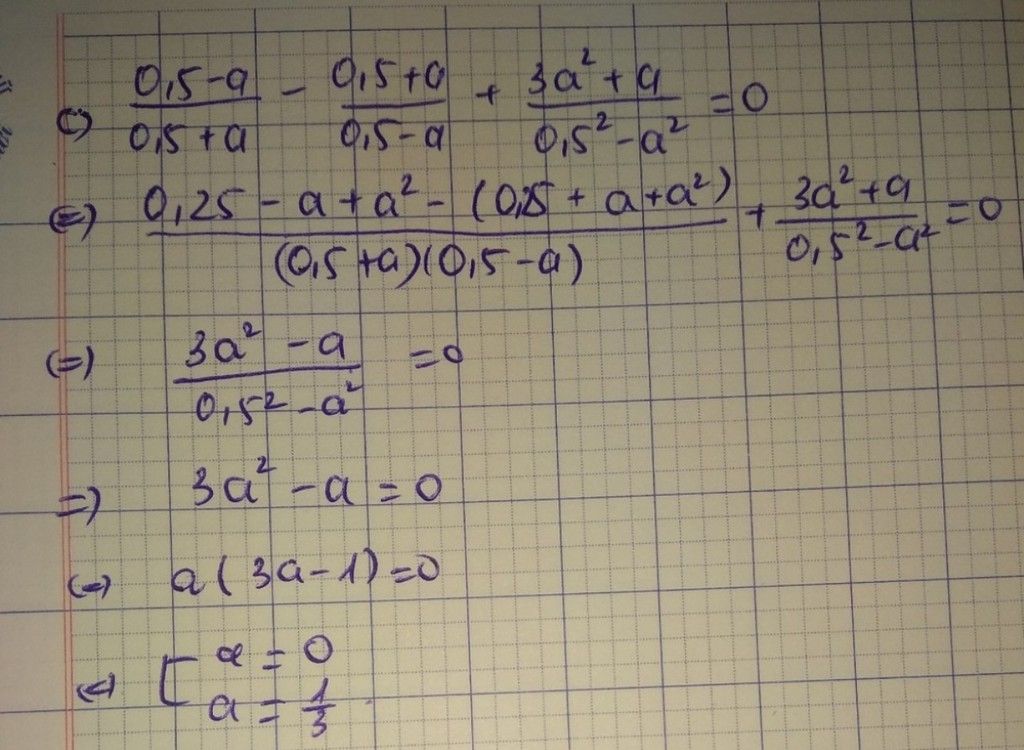 ⇔ (0,5-a)/(0,5+a) - (0,5+a)/(0,5-a) + (3a²+a)/(0,5²-a²) = 0
⇔ (0,25-a+a²-(0,25+a+a²))/((0,5+a)(0,5-a)) + (3a²+a)/(0,5²-a²) = 0
⇔ (3a²-a)/(0,5²-a²) = 0
⇒ 3a²-a = 0
⇔ a(3a-1) = 0
⇔ [ a = 0
a = 1/3